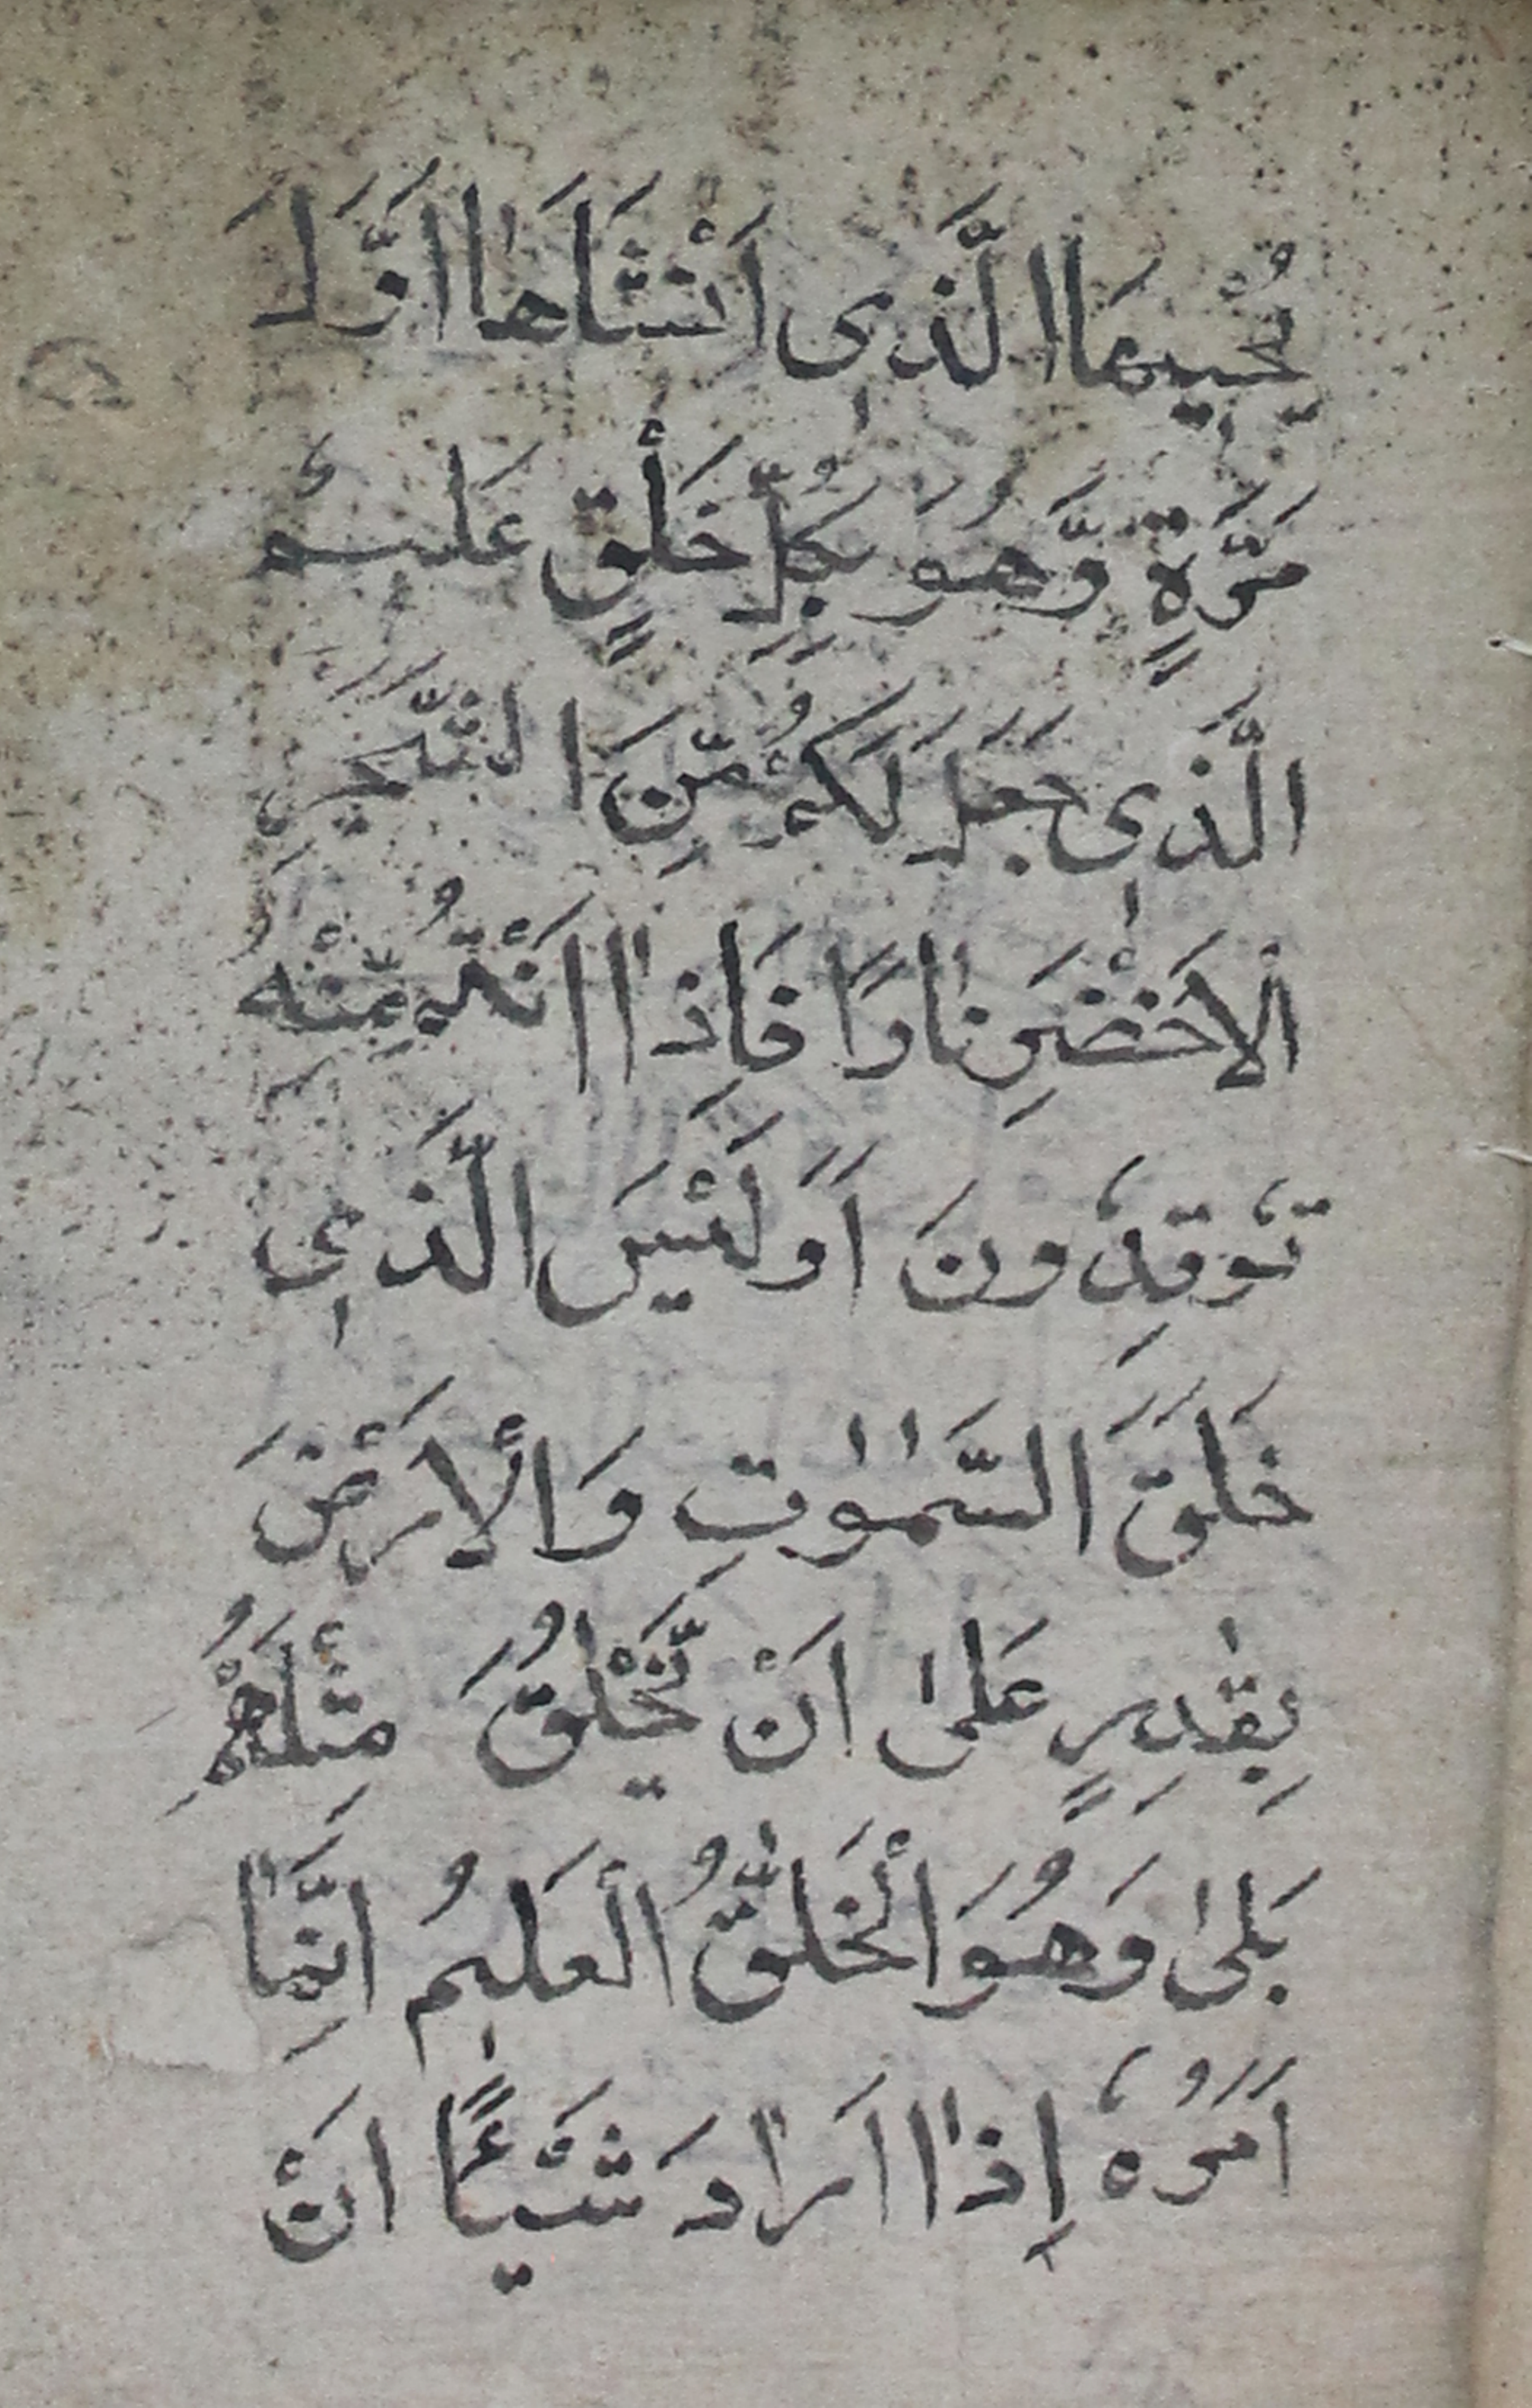 يُحْيِيهَا الَّذِى اَنْشَاَهَا اَوَّلَ
مَرَّةٍ وَّهُوَ بِكُلِّ خَلْقٍ عَلِيْمٌ
الَّذِى جَعَلَ لَكُمْ مِّنَ الشَّجَرِ
الْاَخْضَرِ نَارًا فَاِذَا اَنْتُمْ مِّنْهُ
تُوقِدُونَ اَوَلَيْسَ الَّذِى
خَلَقَ السَّمٰوٰتِ وَالْاَرْضَ
بِقٰدِرٍ عَلٰى اَنْ يَّخْلُقَ مِثْلَهُمْ
بَلٰى وَهُوَ الْخَلّٰقُ الْعَلِيمُ اِنَّمَا
اَمْرُهُ اِذَا اَرَادَ شَيْئًا اَنْ